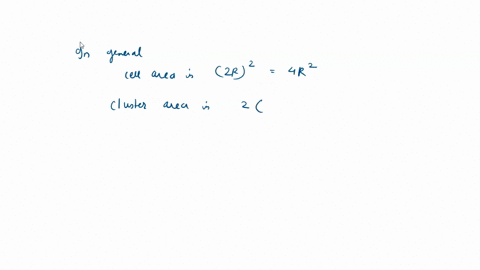 In general
cell area is (2R)² = 4R²
cluster area is 2 (